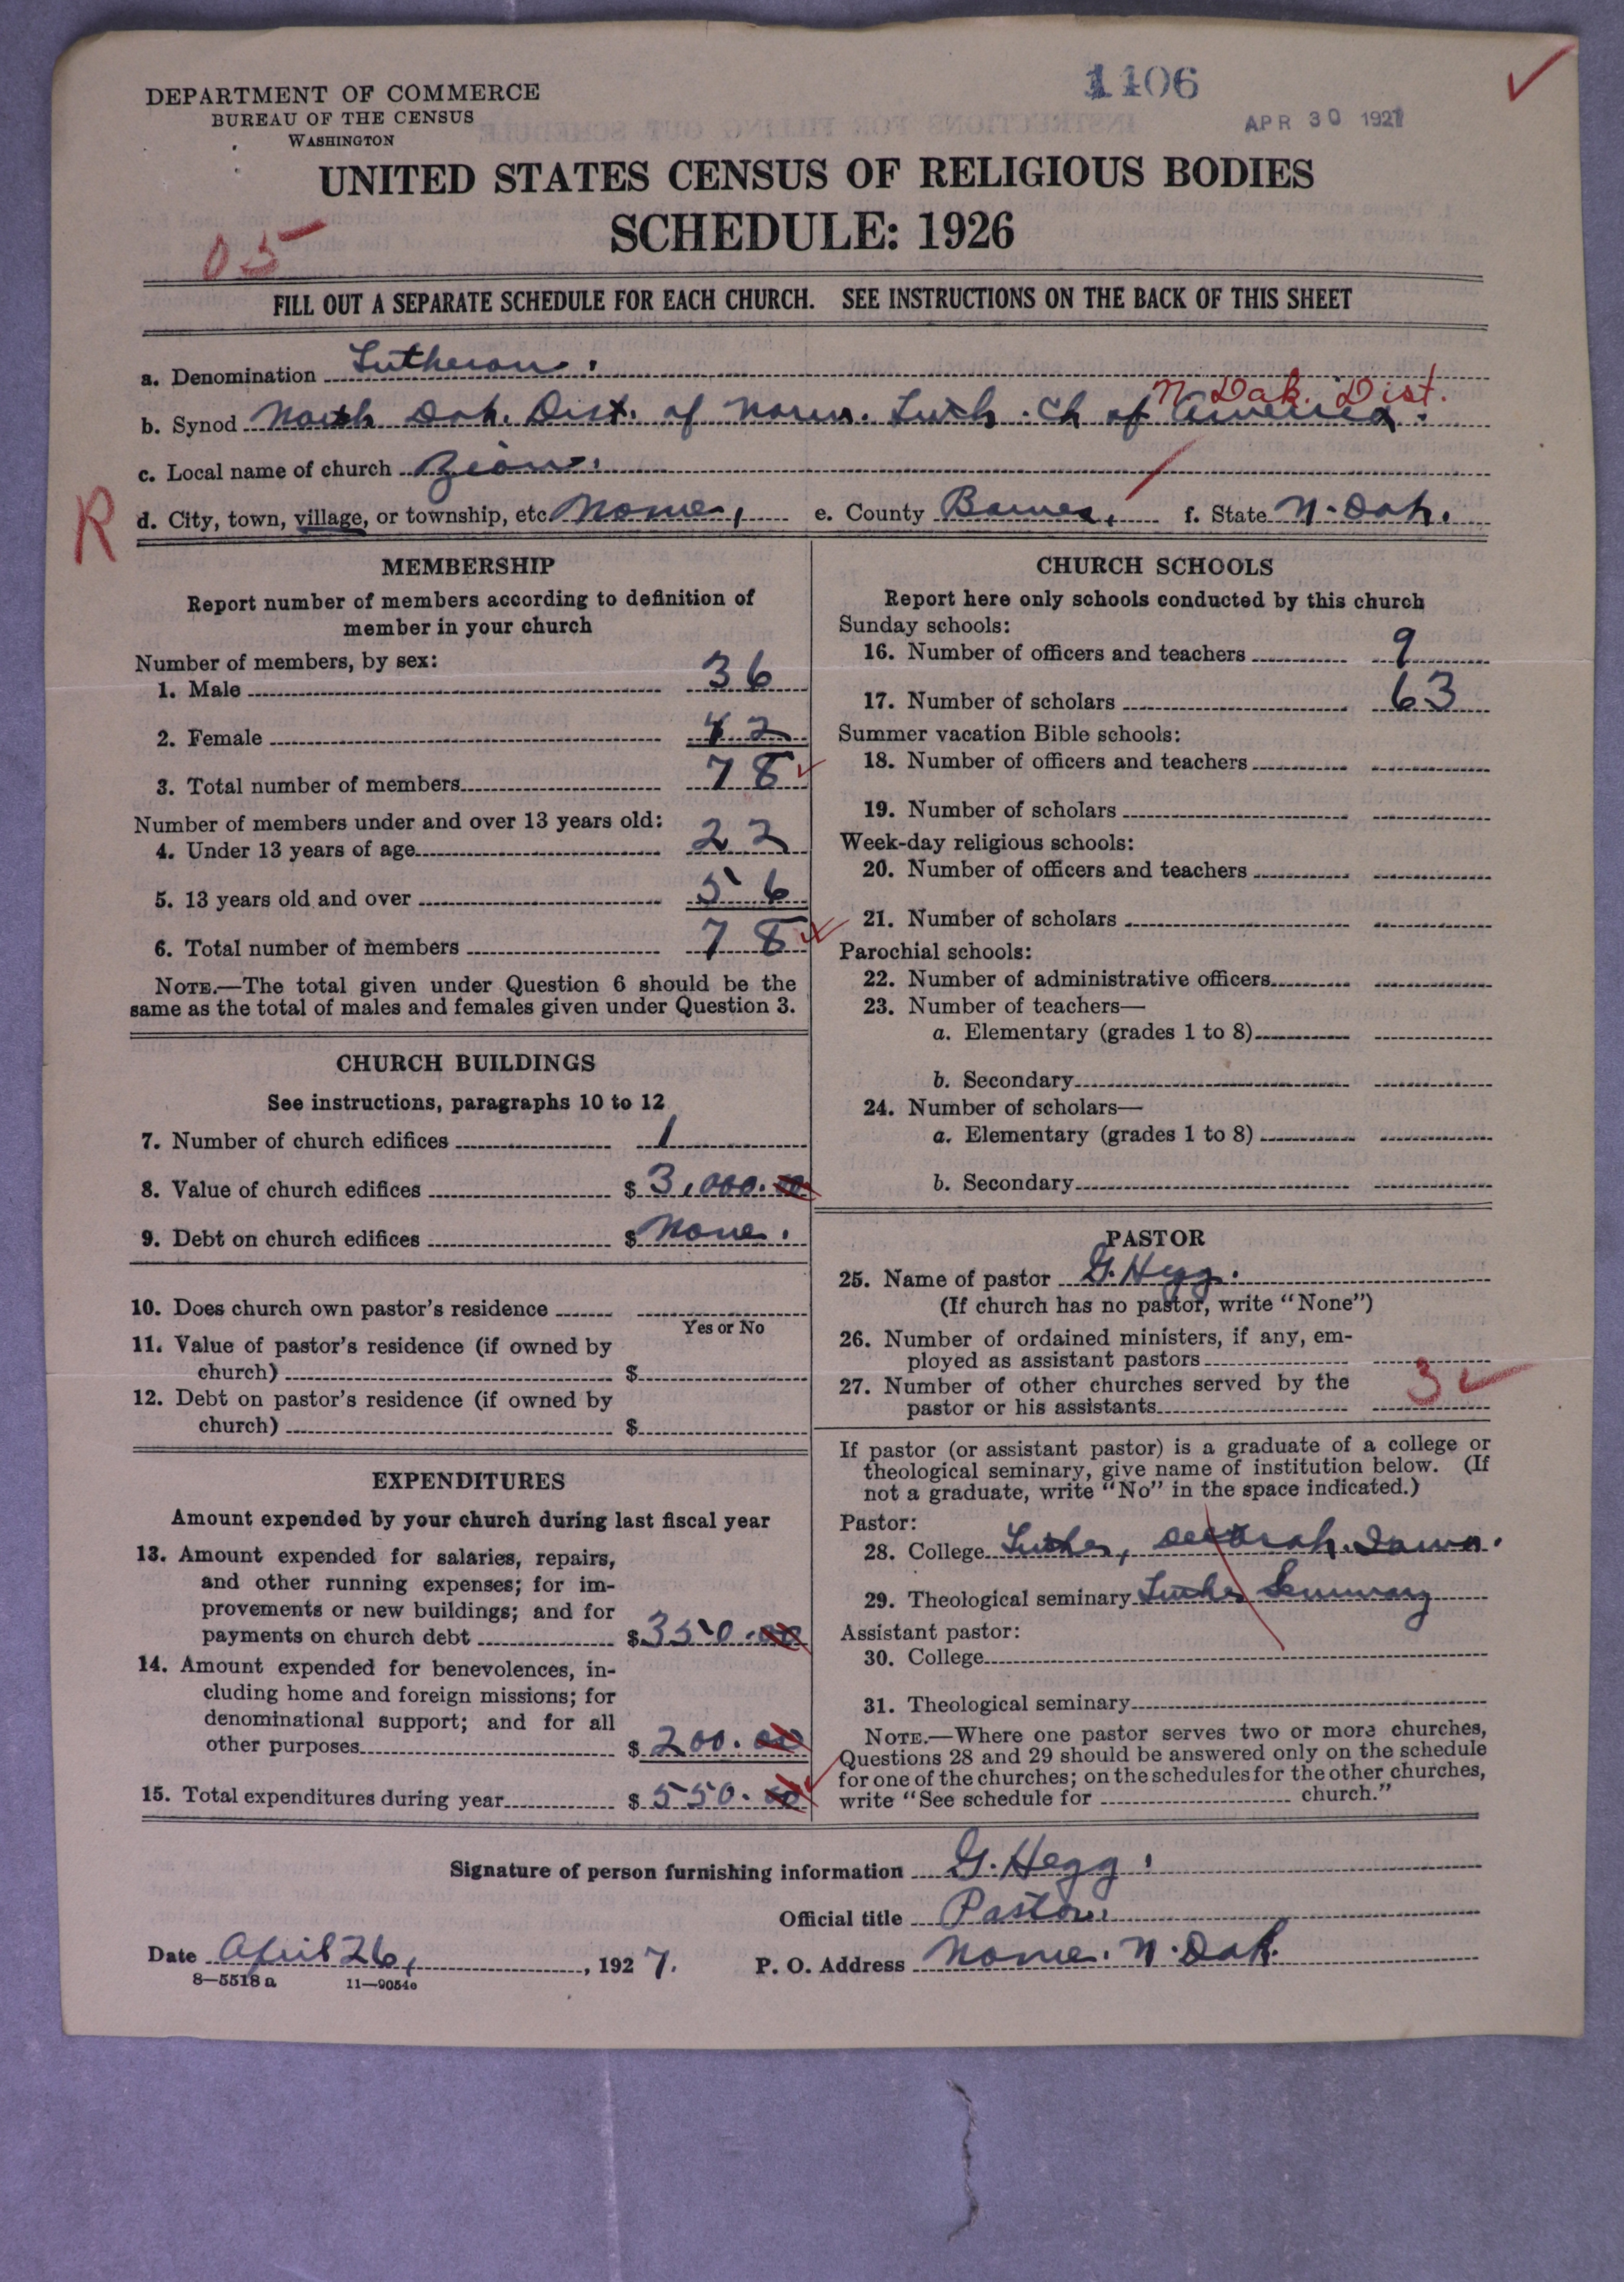 DEPARTMENT OF COMMERCE
BUREAU OF THE CENSUS
WASHINGTON
1106
APR 30 1927
UNITED STATES CENSUS OF RELIGIOUS BODIES
SCHEDULE: 1926
05
FILL OUT A SEPARATE SCHEDULE FOR EACH CHURCH. SEE INSTRUCTIONS ON THE BACK OF THIS SHEET
a. Denomination Lutheran.
N Dak. Dist.
b. Synod North Dak. Dist. of Norw. Luth. Ch of America.
c. Local name of church Zion.
R
d. City, town, village, or township, etc Nome, e. County Barnes, f. State N. Dak.
MEMBERSHIP
Report number of members according to definition of
member in your church
Number of members, by sex:
1. Male 36
2. Female 42
3. Total number of members 78
Number of members under and over 13 years old:
4. Under 13 years of age 22
5. 13 years old and over 56
6. Total number of members 78
NOTE.—The total given under Question 6 should be the
same as the total of males and females given under Question 3.
CHURCH BUILDINGS
See instructions, paragraphs 10 to 12
7. Number of church edifices 1
8. Value of church edifices $ 3,000.00
9. Debt on church edifices $ None.
10. Does church own pastor's residence
Yes or No
11. Value of pastor's residence (if owned by
church) $
12. Debt on pastor's residence (if owned by
church) $
EXPENDITURES
Amount expended by your church during last fiscal year
13. Amount expended for salaries, repairs,
and other running expenses; for im-
provements or new buildings; and for
payments on church debt $ 350.00
14. Amount expended for benevolences, in-
cluding home and foreign missions; for
denominational support; and for all
other purposes $ 200.00
15. Total expenditures during year $ 550.00
CHURCH SCHOOLS
Report here only schools conducted by this church
Sunday schools:
16. Number of officers and teachers 9
17. Number of scholars 63
Summer vacation Bible schools:
18. Number of officers and teachers
19. Number of scholars
Week-day religious schools:
20. Number of officers and teachers
21. Number of scholars
Parochial schools:
22. Number of administrative officers
23. Number of teachers—
a. Elementary (grades 1 to 8)
b. Secondary
24. Number of scholars—
a. Elementary (grades 1 to 8)
b. Secondary
PASTOR
25. Name of pastor G. Hegg.
(If church has no pastor, write "None")
26. Number of ordained ministers, if any, em-
ployed as assistant pastors
27. Number of other churches served by the
pastor or his assistants 3
If pastor (or assistant pastor) is a graduate of a college or
theological seminary, give name of institution below. (If
not a graduate, write "No" in the space indicated.)
Pastor:
28. College Luther, Decorah. Iowa.
29. Theological seminary Luther Seminary
Assistant pastor:
30. College
31. Theological seminary
NOTE.—Where one pastor serves two or more churches,
Questions 28 and 29 should be answered only on the schedule
for one of the churches; on the schedules for the other churches,
write "See schedule for church."
Signature of person furnishing information G. Hegg.
Official title Pastor.
Date April 26, 1927. P. O. Address Nome. N. Dak.
8—5518 a 11—9054c